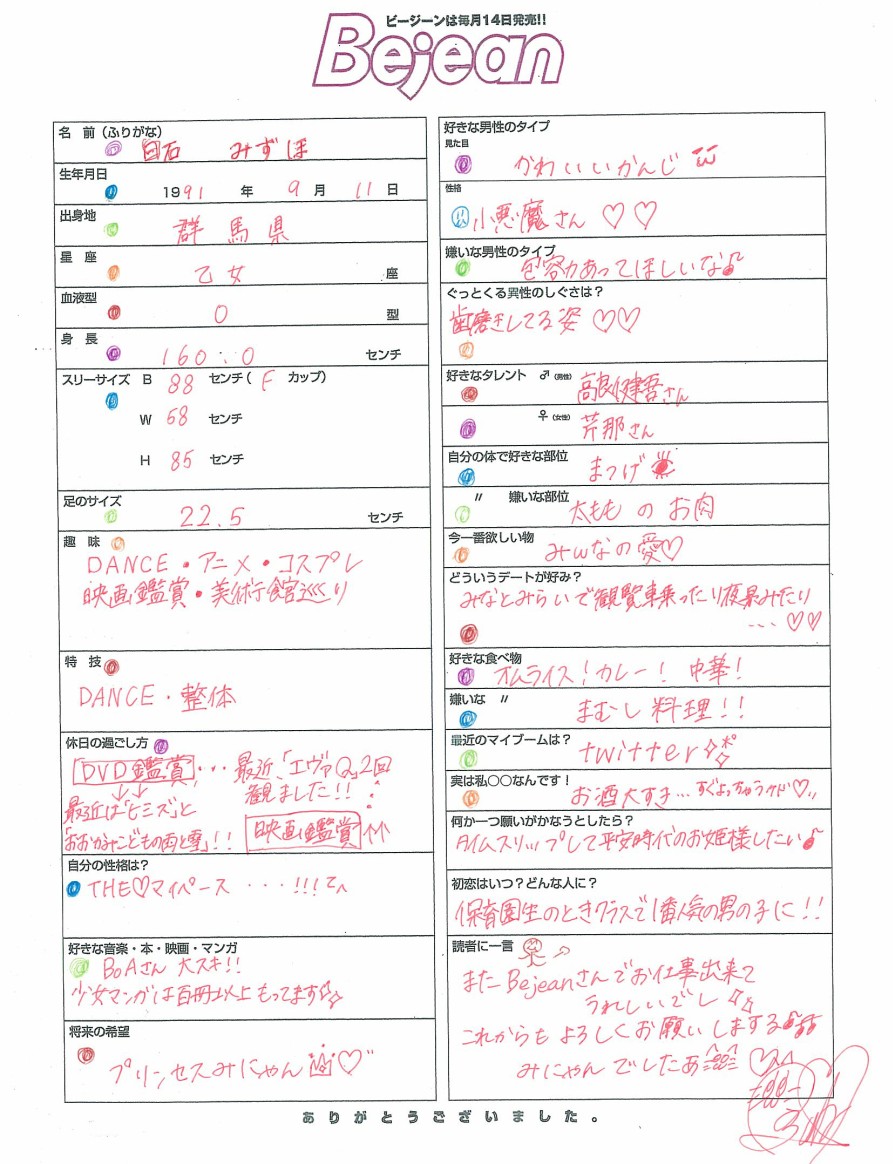 ビージーンは毎月14日発売!!
Bejean
名 前 (ふりがな)
白石 みずほ
生年月日
1991 年 9 月 11 日
出身地
群馬県
星 座
乙女 座
血液型
O 型
身 長
160.0 センチ
スリーサイズ B 88 センチ ( F カップ)
W 58 センチ
H 85 センチ
足のサイズ
22.5 センチ
趣 味
DANCE・アニメ・コスプレ
映画鑑賞・美術館巡り
特 技
DANCE・整体
休日の過ごし方
DVD鑑賞・・・最近、「エヴァQ」2回
観ました!!
最近は「ヒミズ」と
「おおかみこどもの雨と雪」!! 映画鑑賞↑↑
自分の性格は?
THE♡マイペース・・・!!!
好きな音楽・本・映画・マンガ
BoAさん 大スキ!!
少女マンガは百冊以上もってます
将来の希望
プリンセスみにゃん♡
好きな男性のタイプ
見た目
かわいいかんじ
性格
小悪魔さん ♡♡
嫌いな男性のタイプ
包容力あってほしいな♪
ぐっとくる異性のしぐさは?
歯磨きしてる姿 ♡♡
好きなタレント ♂ (男性) 高良健吾さん
♀ (女性) 芹那さん
自分の体で好きな部位
まつげ
〃 嫌いな部位
太もも の お肉
今一番欲しい物
みんなの愛♡
どういうデートが好み?
みなとみらいで観覧車乗ったり夜景みたり
・・・♡♡
好きな食べ物
オムライス!カレー! 中華!
嫌いな 〃
まむし料理!!
最近のマイブームは?
twitter
実は私〇〇なんです!
お酒大すき…すぐよっちゃうケド♡
何か一つ願いがかなうとしたら?
タイムスリップして平安時代のお姫様したい♪
初恋はいつ?どんな人に?
保育園生のときクラスで1番人気の男の子に!!
読者に一言
またBejeanさんでお仕事出来て
うれしいでし
これからも よろしくお願いしまする♪♪
みにゃん でしたあ ♡
ありがとうございました。